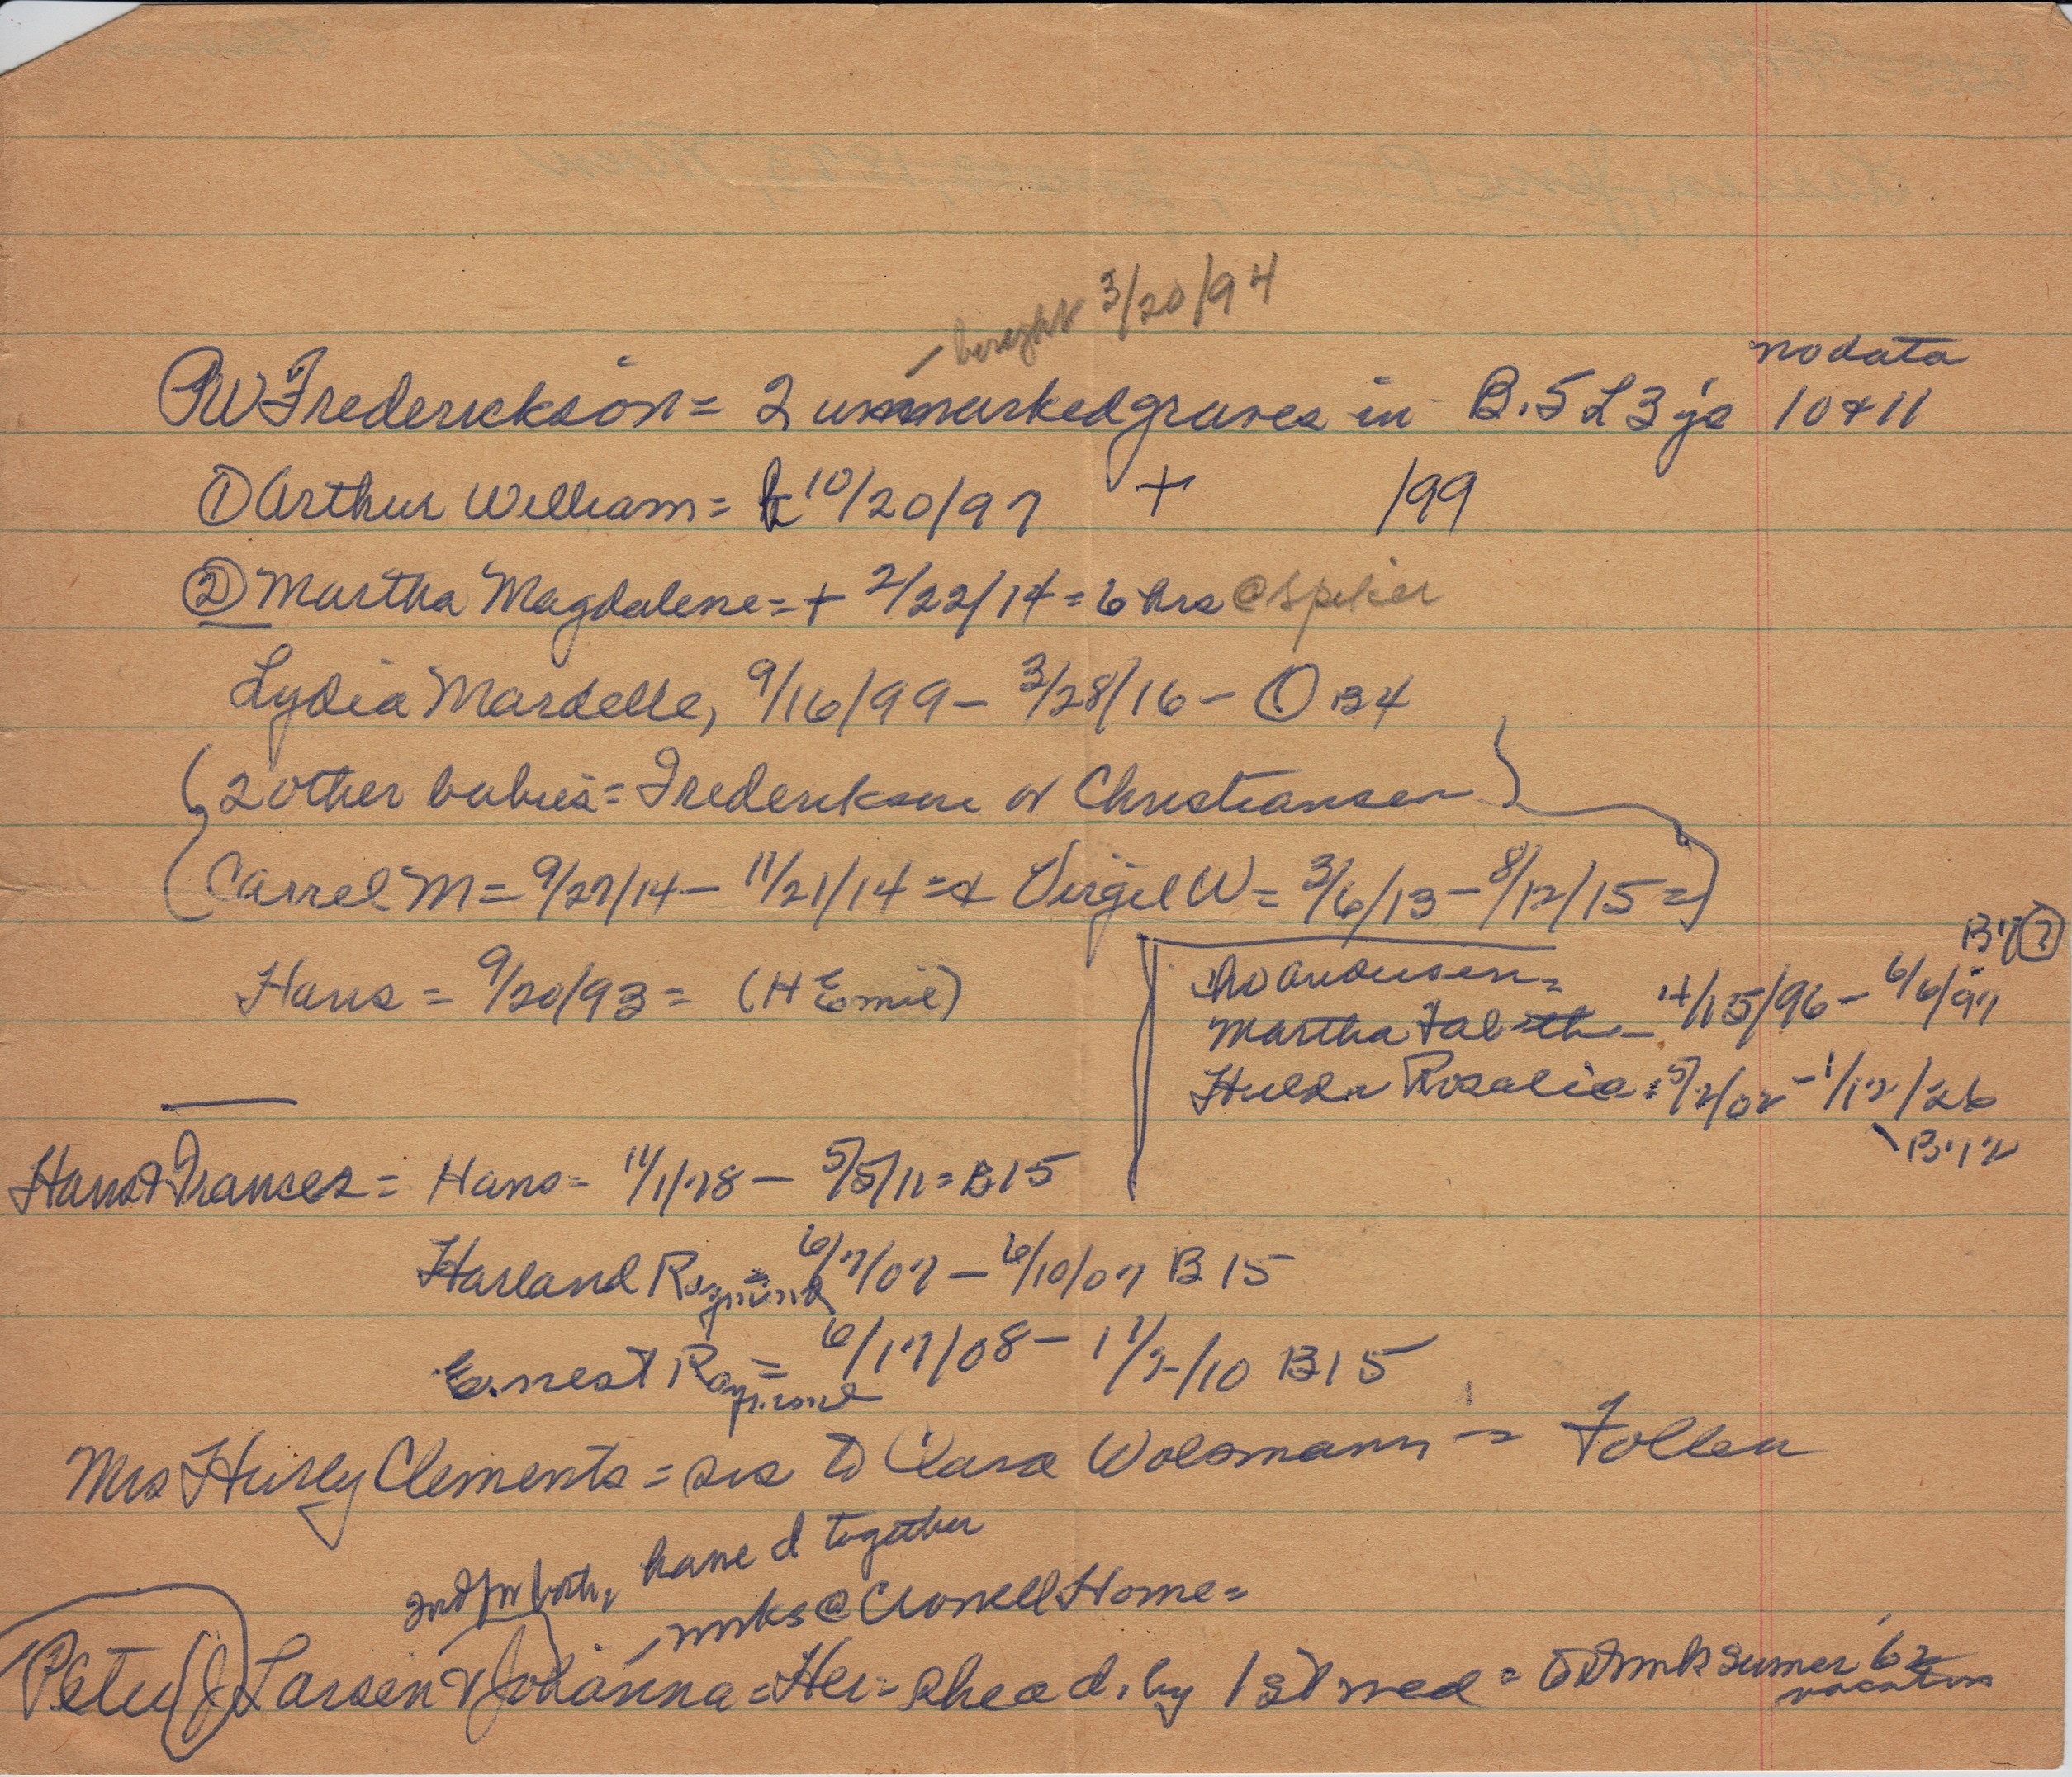 bought 3/20/94
no data
PW Frederickson = 2 unmarked graves in B.5 L3 gs 10 & 11
① Arthur William = b 10/20/97 + /99
② Martha Magdalene = + 2/22/14 = 6 hrs @ Spiker
Lydia Mardelle, 9/16/99 – 3/28/16 – ① B4
(2 other babies = Frederiksen or Christiansen)
(Carrel M = 9/27/14 – 11/21/14 = & Virgil W = 3/6/13 – 8/12/15 =)
Hans = 9/20/93 = (H Emil)
B7 ?
Andersen =
Martha Tabeth – 4/15/96 – 6/6/97
Hilda Rosalia = 5/2/02 – 1/12/26
B.12
Hans & Frances = Hans = 11/1/78 – 5/5/11 = B15
Harland Raymond = 6/7/07 – 6/10/07 B15
Ernest Raymond = 6/17/08 – 11/2/10 B15
Mrs Hurly Clements = sis to Clara Wolsmann = Follen
2nd for both, have d together
mks @ Crowell Home =
Peter J Larsen & Johanna = Her = she a d. by 1st wed = sumer '62
vacation